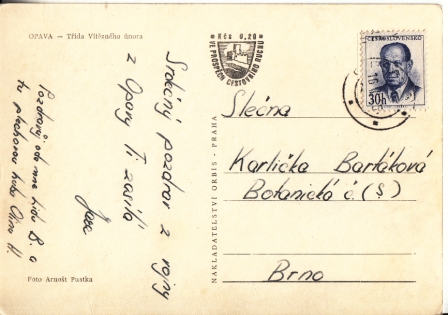 OPAVA — Třída Vítězného února
Kčs 0,20
VE PROSPĚCH CESTOVNÍHO RUCHU
ČESKOSLOVENSKO
30h
Srdečný pozdrav z vojny
z Opavy Ti zasílá
Jara
Pozdravuj ode mne
B. a
tu
Olinu H.
Foto Arnošt Pustka
NAKLADATELSTVÍ ORBIS - PRAHA
Slečna
Karlička Bartáková
Botanická č. (5)
Brno